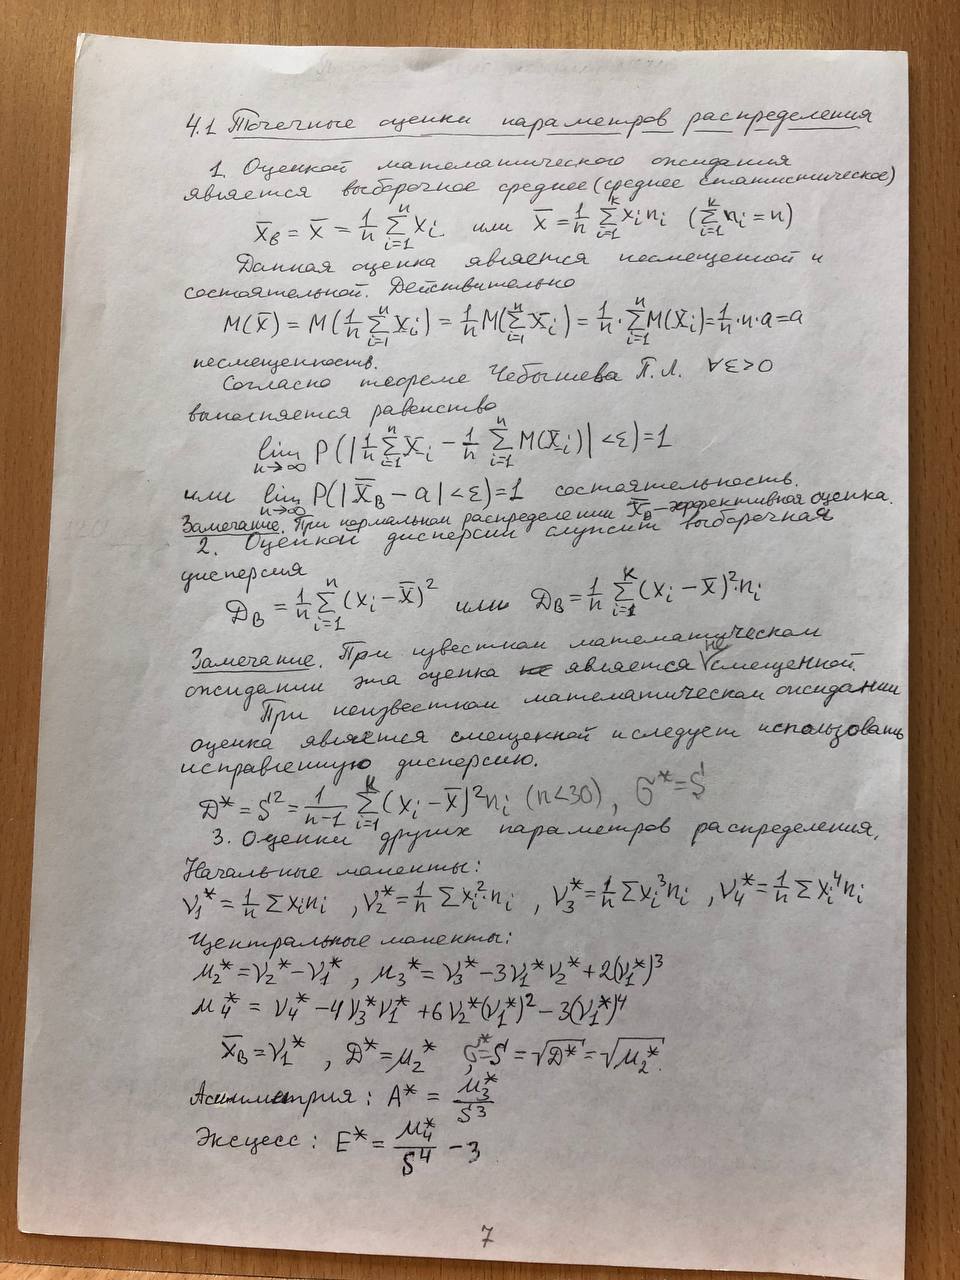 4.1 Точечные оценки параметров распределения
1. Оценкой математического ожидания
является выборочное среднее (среднее статистическое)
X̅_B = X̅ = 1/n ∑_{i=1}^{n} X_i или X̅ = 1/n ∑_{i=1}^{k} x_i n_i (∑_{i=1}^{k} n_i = n)
Данная оценка является несмещенной и
состоятельной. Действительно
M(X̅) = M(1/n ∑_{i=1}^{n} X_i) = 1/n M(∑_{i=1}^{n} X_i) = 1/n · ∑_{i=1}^{n} M(X_i) = 1/n · n · a = a
несмещенность.
Согласно теореме Чебышева П.Л. ∀ε<0
выполняется равенство
lim_{n→∞} P(|1/n ∑_{i=1}^{n} X_i − 1/n ∑_{i=1}^{n} M(X_i)| < ε) = 1
или lim_{n→∞} P(|X̅_B − a| < ε) = 1 состоятельность.
Замечание. При нормальном распределении X̅_B – эффективная оценка.
2. Оценкой дисперсии служит выборочная
дисперсия
D_B = 1/n ∑_{i=1}^{n} (x_i − X̅)² или D_B = 1/n ∑_{i=1}^{k} (x_i − X̅)² · n_i
Замечание. При известном математическом
ожидании эта оценка является несмещенной.
При неизвестном математическом ожидании
оценка является смещенной и следует использовать
исправленную дисперсию.
D* = S² = 1/(n−1) ∑_{i=1}^{k} (x_i − X̅)² n_i (n<30), σ* = S
3. Оценки других параметров распределения.
Начальные моменты:
ν₁* = 1/n ∑ x_i n_i, ν₂* = 1/n ∑ x_i² · n_i, ν₃* = 1/n ∑ x_i³ n_i, ν₄* = 1/n ∑ x_i⁴ n_i
Центральные моменты:
μ₂* = ν₂* − ν₁*, μ₃* = ν₃* − 3ν₁*ν₂* + 2(ν₁*)³
μ₄* = ν₄* − 4ν₃*ν₁* + 6ν₂*(ν₁*)² − 3(ν₁*)⁴
X̅_B = ν₁*, D* = μ₂*, σ* = S = √D* = √μ₂*.
Асимметрия: A* = μ₃*/S³
Эксцесс: E* = μ₄*/S⁴ − 3
7